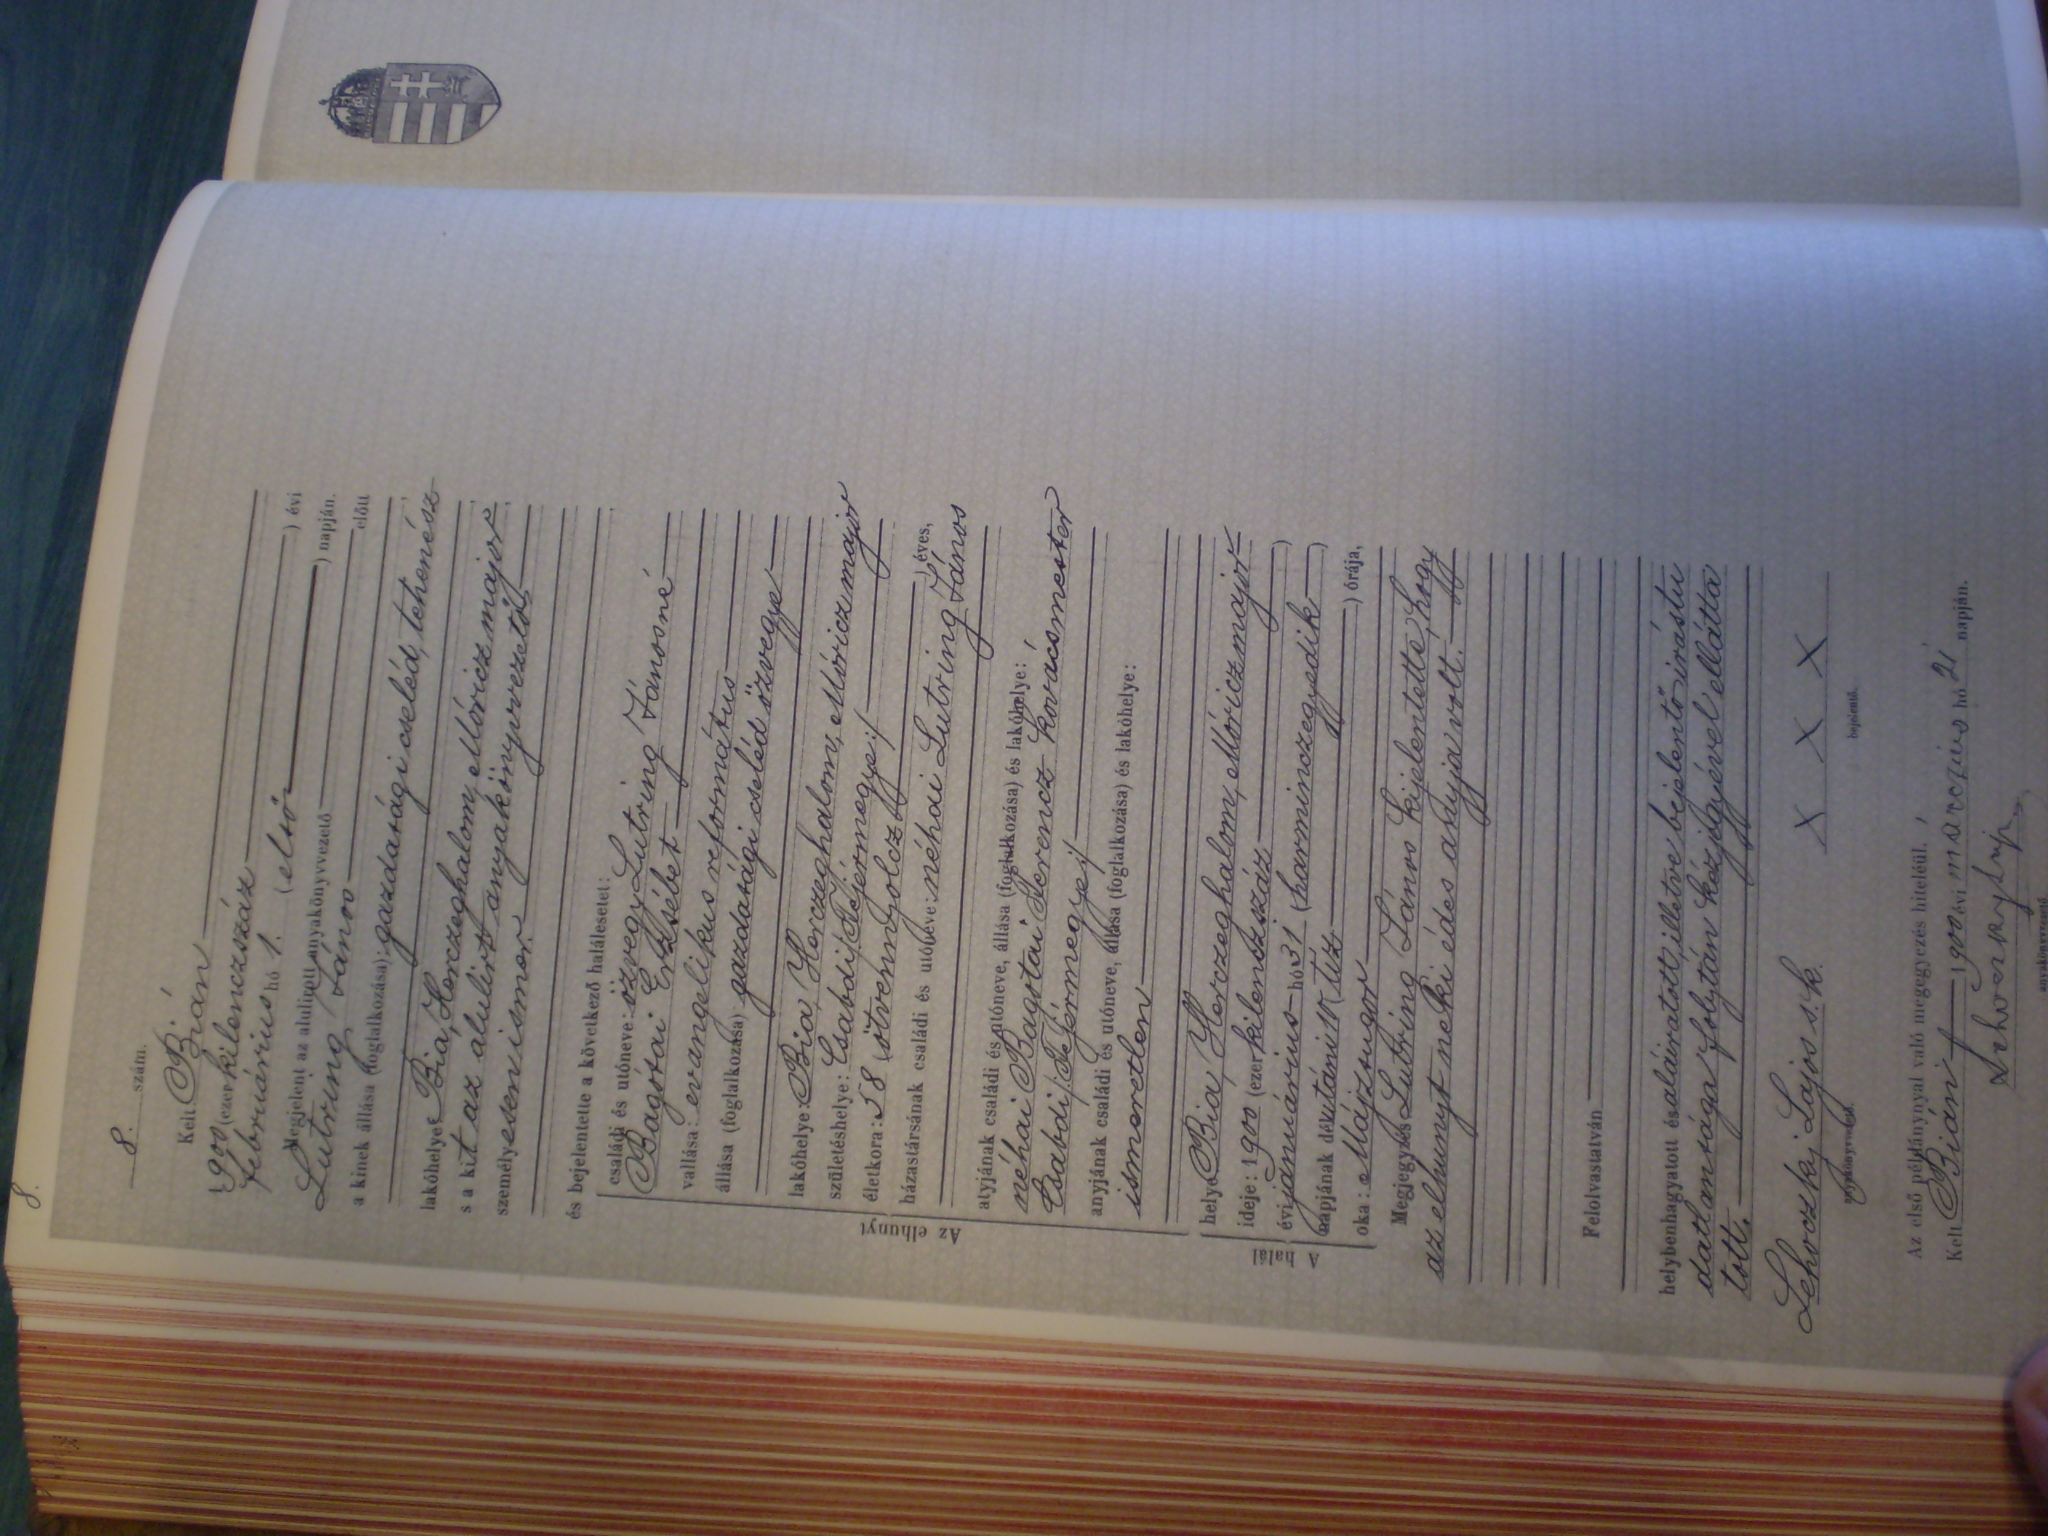 8.
8. szám.
Kelt Bián
1900 (ezer kilenczszáz
) évi
februárius hó 1. (első
) napján.
Megjelent az alulirott anyakönyvvezető előtt
Lutring János
a kinek állása (foglalkozása): gazdasági cseléd, tehenész
lakóhelye Bia, Herczeghalom, Móricz major
s a kit az alulirt anyakönyvvezető
személyesen ismer
és bejelentette a következő halálesetet:
Az elhunyt
családi és utóneve: özvegy Lutring Jánosné
Bagotai Erzsébet
vallása: evangelikus református
állása (foglalkozása) gazdasági cseléd özvegye
lakóhelye: Bia, Herczeghalom, Móricz major
születéshelye: Csabdi /: Fejérmegye :/
életkora: 58 (ötvennyolcz) éves,
házastársának családi és utóneve: néhai Lutring János
atyjának családi és utóneve, állása (foglalkozása) és lakóhelye:
néhai Bagotai Ferencz kovácsmester
Csabdi /: Fejérmegye :/
anyjának családi és utóneve, állása (foglalkozása) és lakóhelye:
ismeretlen
A halál
helye Bia, Herczeghalom, Móricz major
ideje: 1900 (ezer kilenczszáz )
évi januárius hó 31 (harminczegyedik )
napjának délutáni 10 (tíz ) órája,
oka: Májzsugor
Megjegyzés Lutring János kijelentette, hogy
az elhunyt neki édes anyja volt.
Felolvastatván
helybenhagyatott és aláiratott illetve bejelentő irástu
datlansága folytán kézjegyével ellátta
tott.
Lehoczky Lajos s. k. X X X
anyakönyvvezető. bejelentő.
Az első példánynyal való megegyezés hiteléül.
Kelt Bián 1900 évi marczius hó 2i napján.
anyakönyvvezető